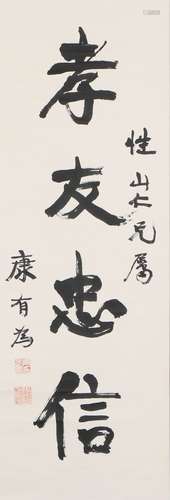 性山仁兄屬
孝友忠信
康有為